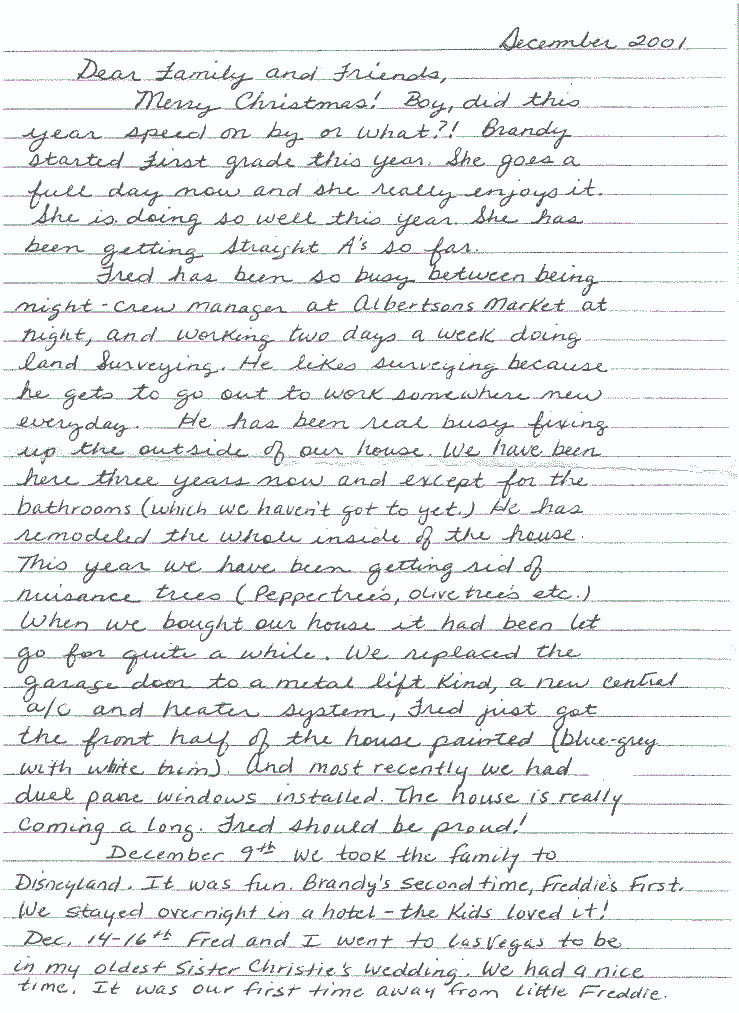 December 2001
Dear Family and Friends,
Merry Christmas! Boy, did this
year speed on by or what?! Brandy
started first grade this year. She goes a
full day now and she really enjoys it.
She is doing so well this year. She has
been getting straight A's so far.
Fred has been so busy between being
night-crew manager at Albertsons Market at
night, and working two days a week doing
land surveying. He likes surveying because
he gets to go out to work somewhere new
everyday. He has been real busy fixing
up the outside of our house. We have been
here three years now and except for the
bathrooms (which we haven't got to yet.) He has
remodeled the whole inside of the house.
This year we have been getting rid of
nuisance trees (Peppertree's, olive tree's etc.)
When we bought our house it had been let
go for quite a while. We replaced the
garage door to a metal lift kind, a new central
a/c and heater system, Fred just got
the front half of the house painted (blue-grey
with white trim). And most recently we had
duel pane windows installed. The house is really
coming a long. Fred should be proud!
December 9th we took the family to
Disneyland. It was fun. Brandy's second time, Freddie's first.
We stayed overnight in a hotel - the kids loved it!
Dec. 14-16th Fred and I went to Las Vegas to be
in my oldest sister Christie's wedding. We had a nice
time. It was our first time away from little Freddie.